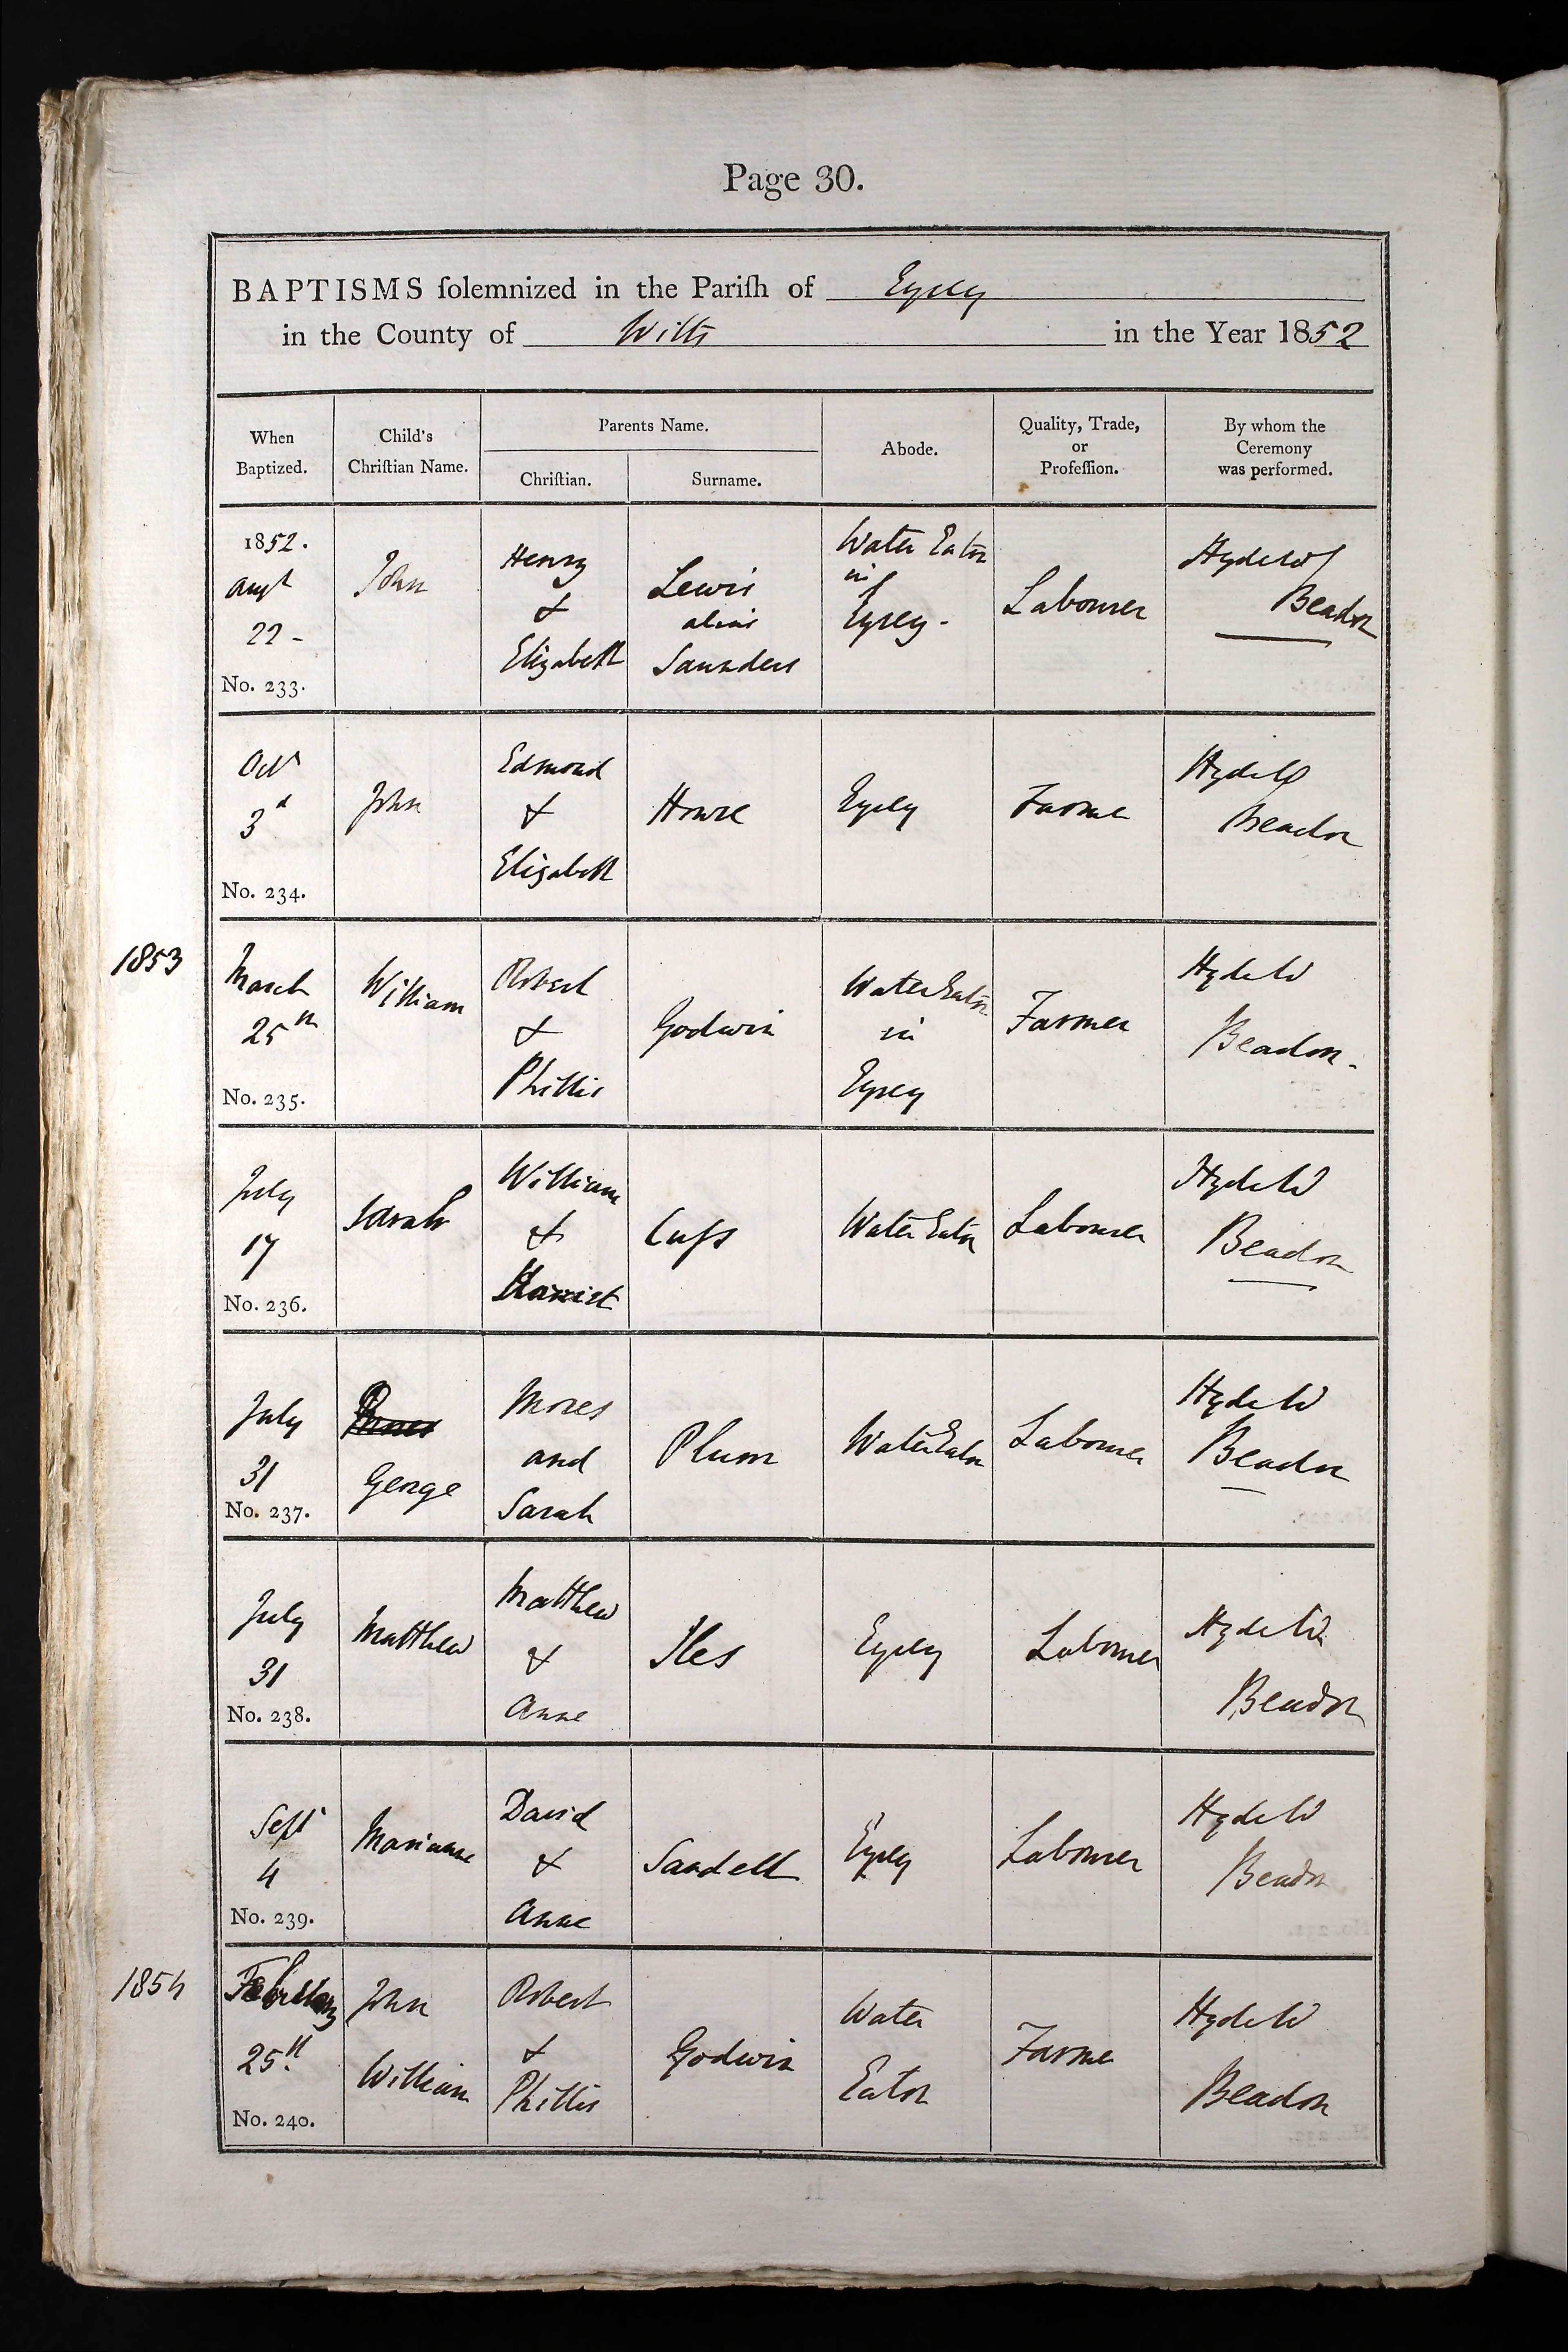 Page 30.
BAPTISMS ſolemnized in the Pariſh of Eysey
in the County of Wilts in the Year 1852
When
Baptized.
Child's
Chriſtian Name.
Parents Name.
Chriſtian.
Surname.
Abode.
Quality, Trade,
or
Profeſſion.
By whom the
Ceremony
was performed.
1852.
Augt
22 -
No. 233.
John
Henry
&
Elizabeth
Lewis
alias
Saunders
Water Eaton
in
Eysey -
Labourer
Hyde W
Beadon
Octr
3d
No. 234.
John
Edmond
&
Elizabeth
Howse
Eysey
Farmer
Hyde W
Beadon
1853
March
25th
No. 235.
William
Robert
&
Phillis
Godwin
Water Eaton
in
Eysey
Farmer
Hyde W
Beadon.
July
17
No. 236.
Sarah
William
&
Harriet
Cuss
Water Eaton
Labourer
Hyde W
Beadon
July
31
No. 237.
George
Moses
and
Sarah
Plum
Water Eaton
Labourer
Hyde W
Beadon
July
31
No. 238.
Matthew
Matthew
&
Anne
Iles
Eysey
Labourer
Hyde W.
Beadon
Sept
4
No. 239.
Marianne
David
&
Anne
Sandell
Eysey
Labourer
Hyde W
Beadon
1854
February
25th
No. 240.
John
William
Robert
&
Phillis
Godwin
Water
Eaton
Farmer
Hyde W
Beadon